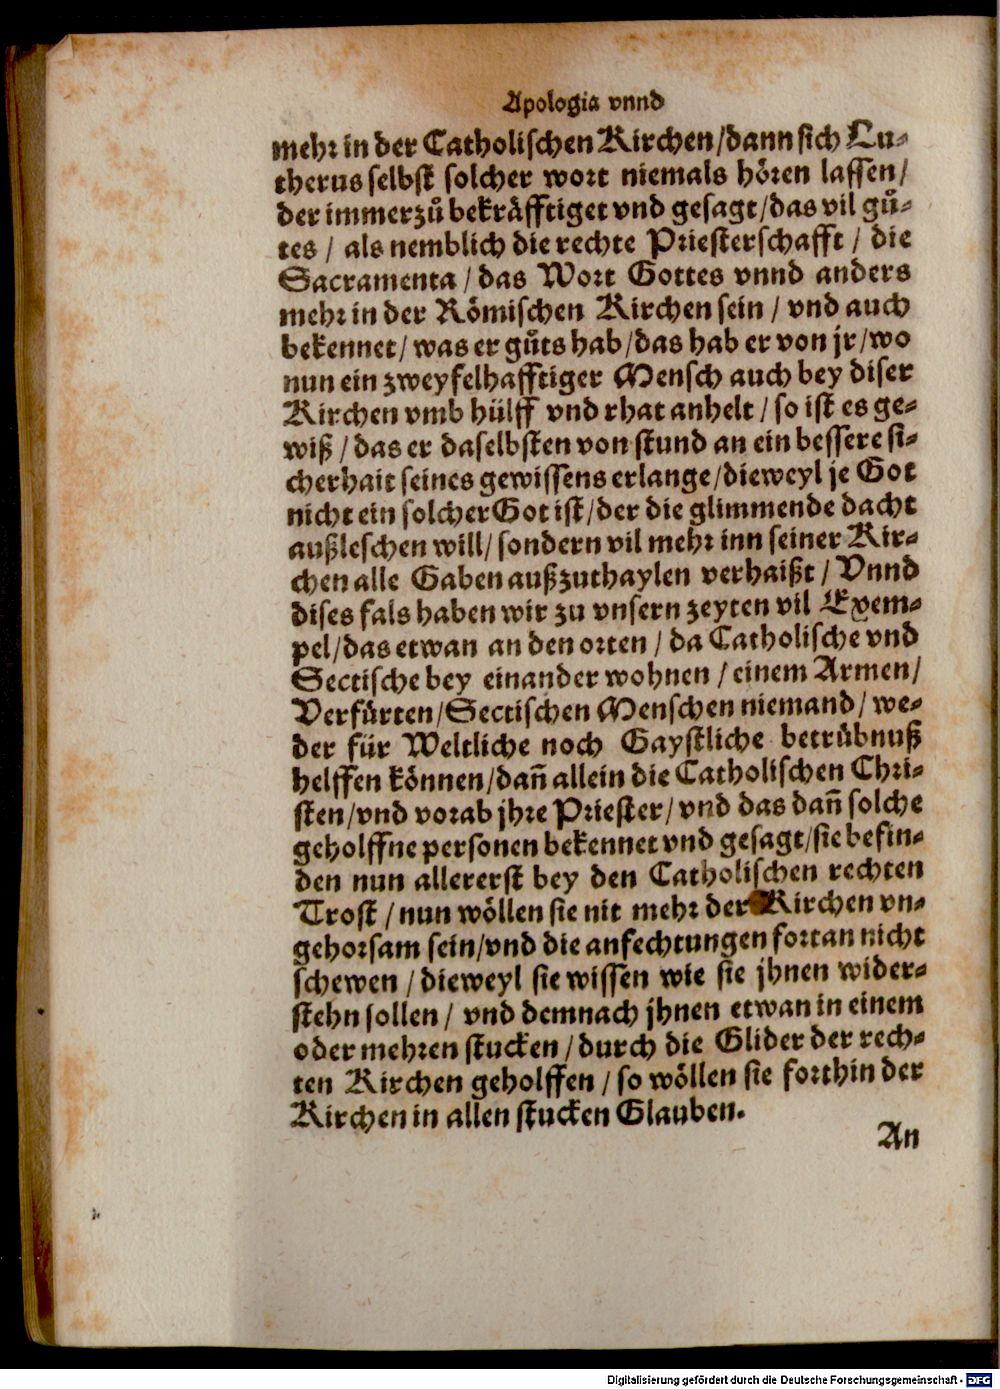 Apologia vnnd
mehr in der Catholischen Kirchen/dann sich Lu-
therus selbst solcher wort niemals hören lassen/
der immerzů bekräfftiget vnd gesagt/das vil gů-
tes / als nemblich die rechte Priesterschafft / die
Sacramenta / das Wort Gottes vnnd anders
mehr in der Römischen Kirchen sein / vnd auch
bekennet/ was er gůts hab/das hab er von jr/wo
nun ein zweyfelhafftiger Mensch auch bey diser
Kirchen vmb hülff vnd rhat anhelt / so ist es ge-
wiß / das er daselbsten von stund an ein bessere si-
cherhait seines gewissens erlange/dieweyl je Got
nicht ein solcher Got ist/der die glimmende dacht
außleschen will/ sondern vil mehr inn seiner Kir-
chen alle Gaben außzuthaylen verhaißt / Vnnd
dises fals haben wir zu vnsern zeyten vil Exem-
pel/das etwan an den orten / da Catholische vnd
Sectische bey einander wohnen / einem Armen/
Verfürten/Sectischen Menschen niemand/ we-
der für Weltliche noch Gaystliche betrübnuß
helffen können/dañ allein die Catholischen Chri-
sten/vnd vorab jhre Priester/ vnd das dañ solche
geholffne personen bekennet vnd gesagt/sie befin-
den nun allererst bey den Catholischen rechten
Trost / nun wöllen sie nit mehr der Kirchen vn-
gehorsam sein/vnd die anfechtungen fortan nicht
schewen / dieweyl sie wissen wie sie jhnen wider-
stehn sollen / vnd demnach jhnen etwan in einem
oder mehren stucken / durch die Glider der rech-
ten Kirchen geholffen / so wöllen sie forthin der
Kirchen in allen stucken Glauben.
An
Digitalisierung gefördert durch die Deutsche Forschungsgemeinschaft - DFG